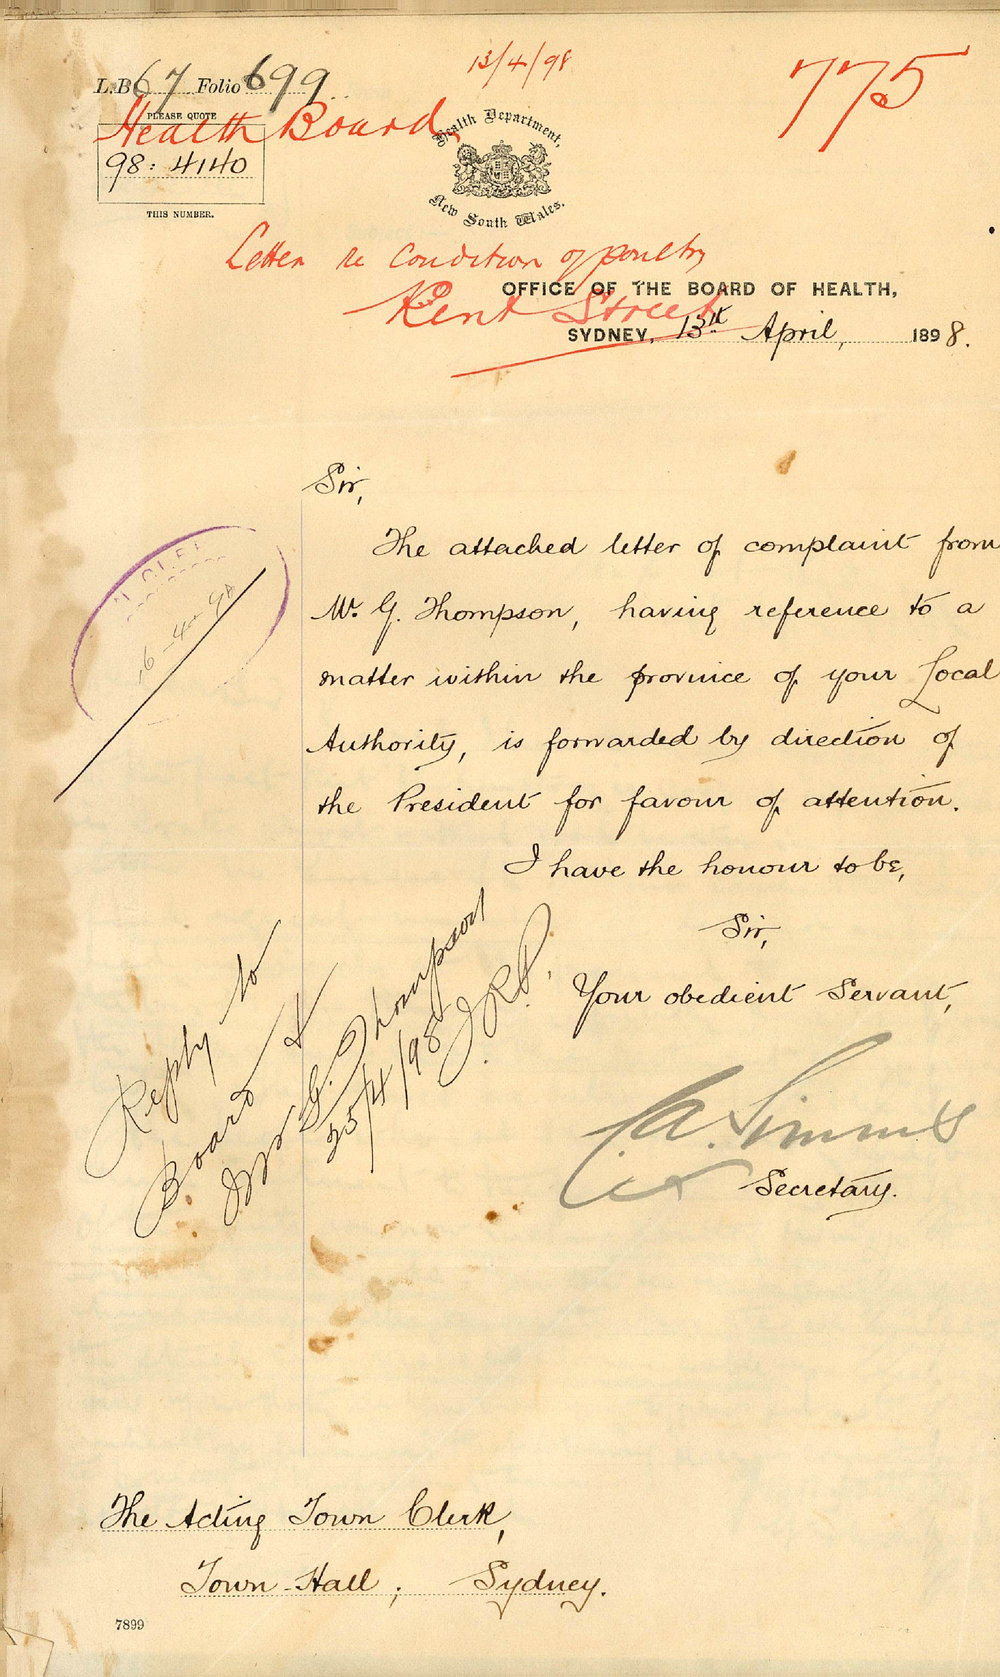 L.B 67 Folio 699
13/4/98
775
PLEASE QUOTE
Health Board
98: 4140
THIS NUMBER.
Health Department,
New South Wales.
Letter re Condition of poultry
Kent Street
OFFICE OF THE BOARD OF HEALTH,
SYDNEY, 13th April, 1898.
Sir,
The attached letter of complaint from
Mr. G. Thompson, having reference to a
matter within the province of your Local
Authority, is forwarded by direction of
the President for favour of attention.
I have the honour to be,
Sir,
Your obedient Servant,
Secretary.
16-4-98
Reply to
Board &
G. Thompson
25/4/98
The Acting Town Clerk,
Town-Hall; Sydney.
7899